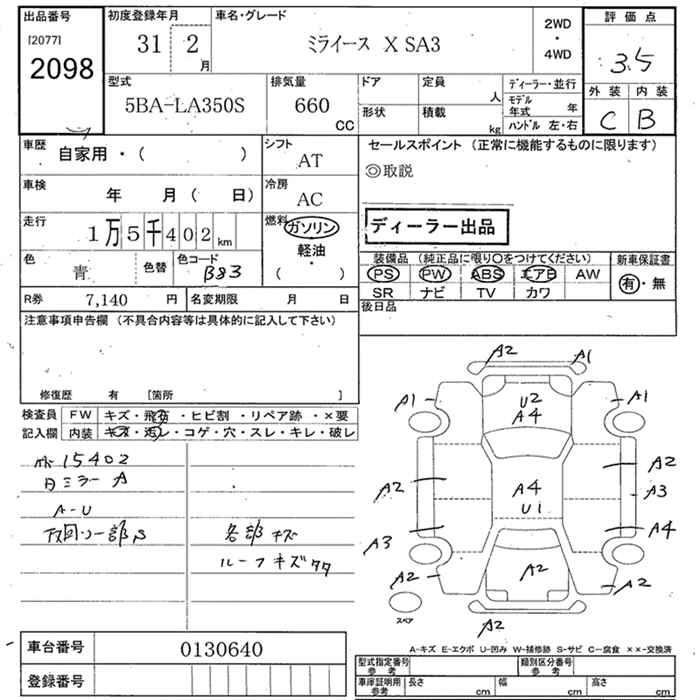 出品番号
[2077]
2098
初度登録年月
31 2 月
車名・グレード
ミライース X SA3
2WD
・
4WD
評価点
3.5
外装 内装
C B
型式
5BA-LA350S
排気量
660 CC
ドア
形状
定員 人
積載 kg
ディーラー・並行
モデル年式 年
ハンドル 左・右
車歴 自家用・( )
シフト AT
車検 年 月( 日)
冷房 AC
走行 1万5千402km
燃料 ガソリン
軽油
・
( )
色 青
色替
色コード B83
R券 7,140 円
名変期限 月 日
セールスポイント (正常に機能するものに限ります)
◎取説
ディーラー出品
装備品 (純正品に限り○をつけてください)
新車保証書
PS PW ABS エアB AW
SR ナビ TV カワ
有・無
後日品
注意事項申告欄 (不具合内容等は具体的に記入して下さい)
修復歴 有 [箇所 ]
検査員記入欄
FW キズ・飛石・ヒビ割・リペア跡・×要
内装 キズ・汚レ・コゲ・穴・スレ・キレ・破レ
15402
ミラー A
A-U
一部S
各部キズ
ルーフキズタタ
A2
A1
A1
U2
A4
A1
A2
A4
U1
A2
A3
A3
A4
A2
A2
A2
A2
スペア
車台番号 0130640
登録番号
A-キズ E-エクボ U-凹み W-補修跡 S-サビ C-腐食 ××-交換済
型式指定番号 参考
類別区分番号 参考
車庫証明用 参考
長さ cm
幅 cm
高さ cm